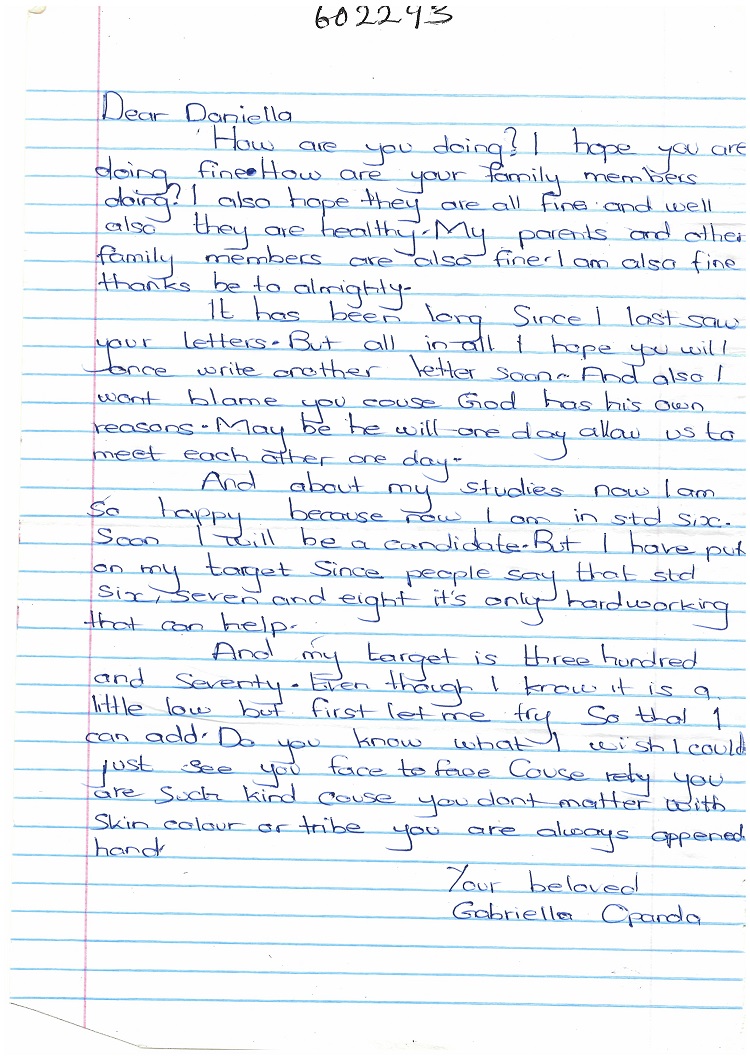 602293
Dear Daniella
How are you doing? I hope you are
doing fine. How are your family members
doing? I also hope they are all fine and well
also they are healthy. My parents and other
family members are also fine. I am also fine
thanks be to almighty.
It has been long Since I last saw
your letters. But all in all I hope you will
once write another letter soon. And also I
want blame you couse God has his own
reasons. May be he will one day allow us to
meet each other one day.
And about my studies now I am
So happy because now I am in std six.
Soon I will be a candidate. But I have put
on my target Since people say that std
Six, Seven and eight it's only hardworking
that can help.
And my target is three hundred
and Seventy. Even though I know it is a
little low but first let me try So that I
can add. Do you know what I wish I could
just see you face to face Couse rely you
are Such kind couse you dont matter with
Skin colour or tribe you are always oppened
hand
Your beloved
Gabriella